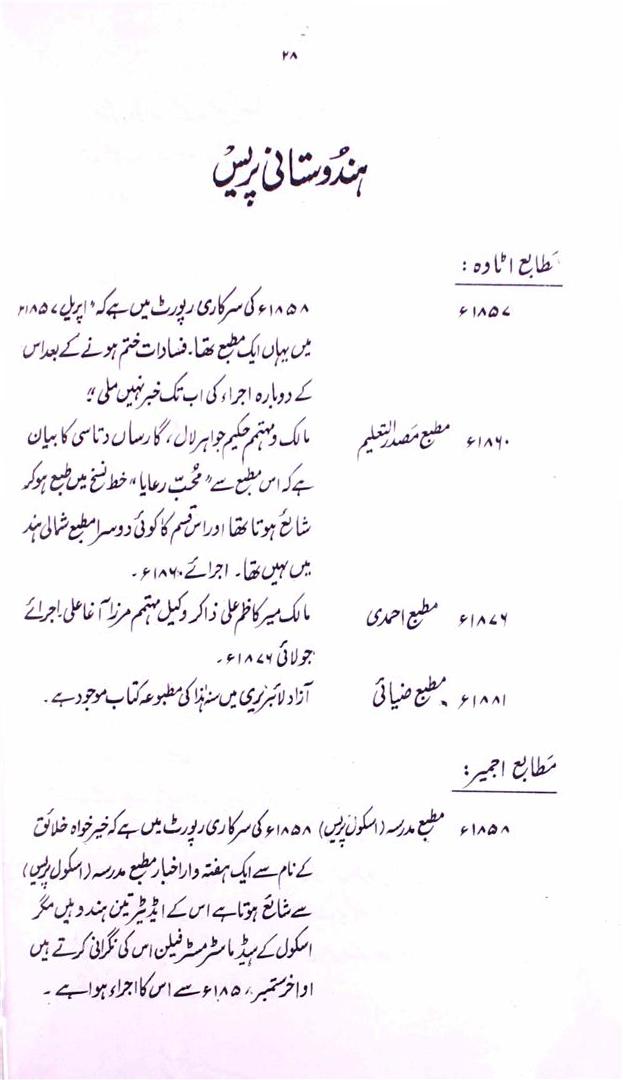 ۲۸
ہندُوستانی پریسْ
مَطابع اٹاوہ :
۱۸۵۷ء ۱۸۵۸ء کی سرکاری رپورٹ میں ہے کہ "اپریل ۱۸۵۷ء
میں یہاں ایک مطبع تھا۔ فسادات ختم ہونے کے بعد اس
کے دوبارہ اجراء کی اب تک خبر نہیں ملی"؛
۱۸۶۰ء مطبع مَصدر التعلیم مالک و مہتمم حکیم جواہر لال، گارساں دتاسی کا بیان
ہے کہ اس مطبع سے "مُحبّ رعایا" خط نسخ میں طبع ہو کر
شائع ہوتا تھا اور اس قسم کا کوئی دوسرا مطبع شمالی ہند
میں نہیں تھا۔ اجرائے ۱۸۶۰ء۔
۱۸۷۶ء مطبع احمدی مالک میر کاظم علی ذاکر وکیل مہتمم مرزا آغا علی۔ اجرائے
جولائی ۱۸۷۶ء۔
۱۸۸۱ء مطبع ضیائی آزاد لائبریری میں سنہ ہٰذا کی مطبوعہ کتاب موجود ہے۔
مَطابع اجمیر :
۱۸۵۸ء مطبع مدرسہ (اسکول پریس) ۱۸۵۸ء کی سرکاری رپورٹ میں ہے کہ خیر خواہ خلائق
کے نام سے ایک ہفتہ وار اخبار مطبع مدرسہ (اسکول پریس)
سے شائع ہوتا ہے اس کے ایڈیٹر تین ہندو ہیں مگر
اسکول کے ہیڈ ماسٹر مسٹر فیلن اس کی نگرانی کرتے ہیں
اواخر ستمبر ۱۸۵۷ء سے اس کا اجراء ہوا ہے۔